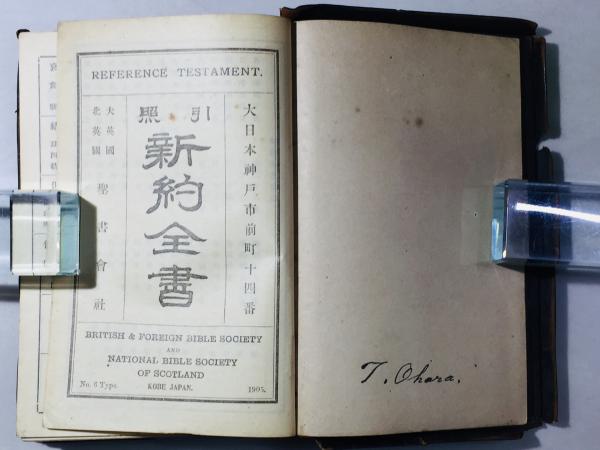 REFERENCE TESTAMENT.
大日本神戸市前町十四番
引照
新約全書
大英國
北英國
聖書會社
BRITISH & FOREIGN BIBLE SOCIETY
AND
NATIONAL BIBLE SOCIETY
OF SCOTLAND
No. 6 Type.
KOBE JAPAN.
1905.
T. Ohara.